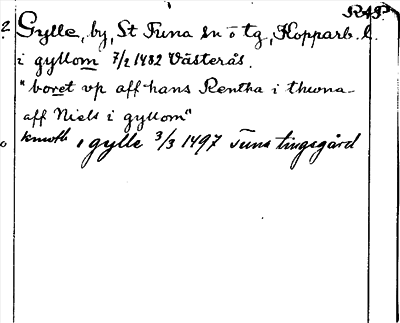 Gylle, by, St Tuna sn o tg, Kopparb. l.
i gyllom 7/2 1482 Västerås.
"boret vp aff hans Rentha i thuna
aff Niels i gyllom"
i gylle 3/3 1497 Tuna tingsgård